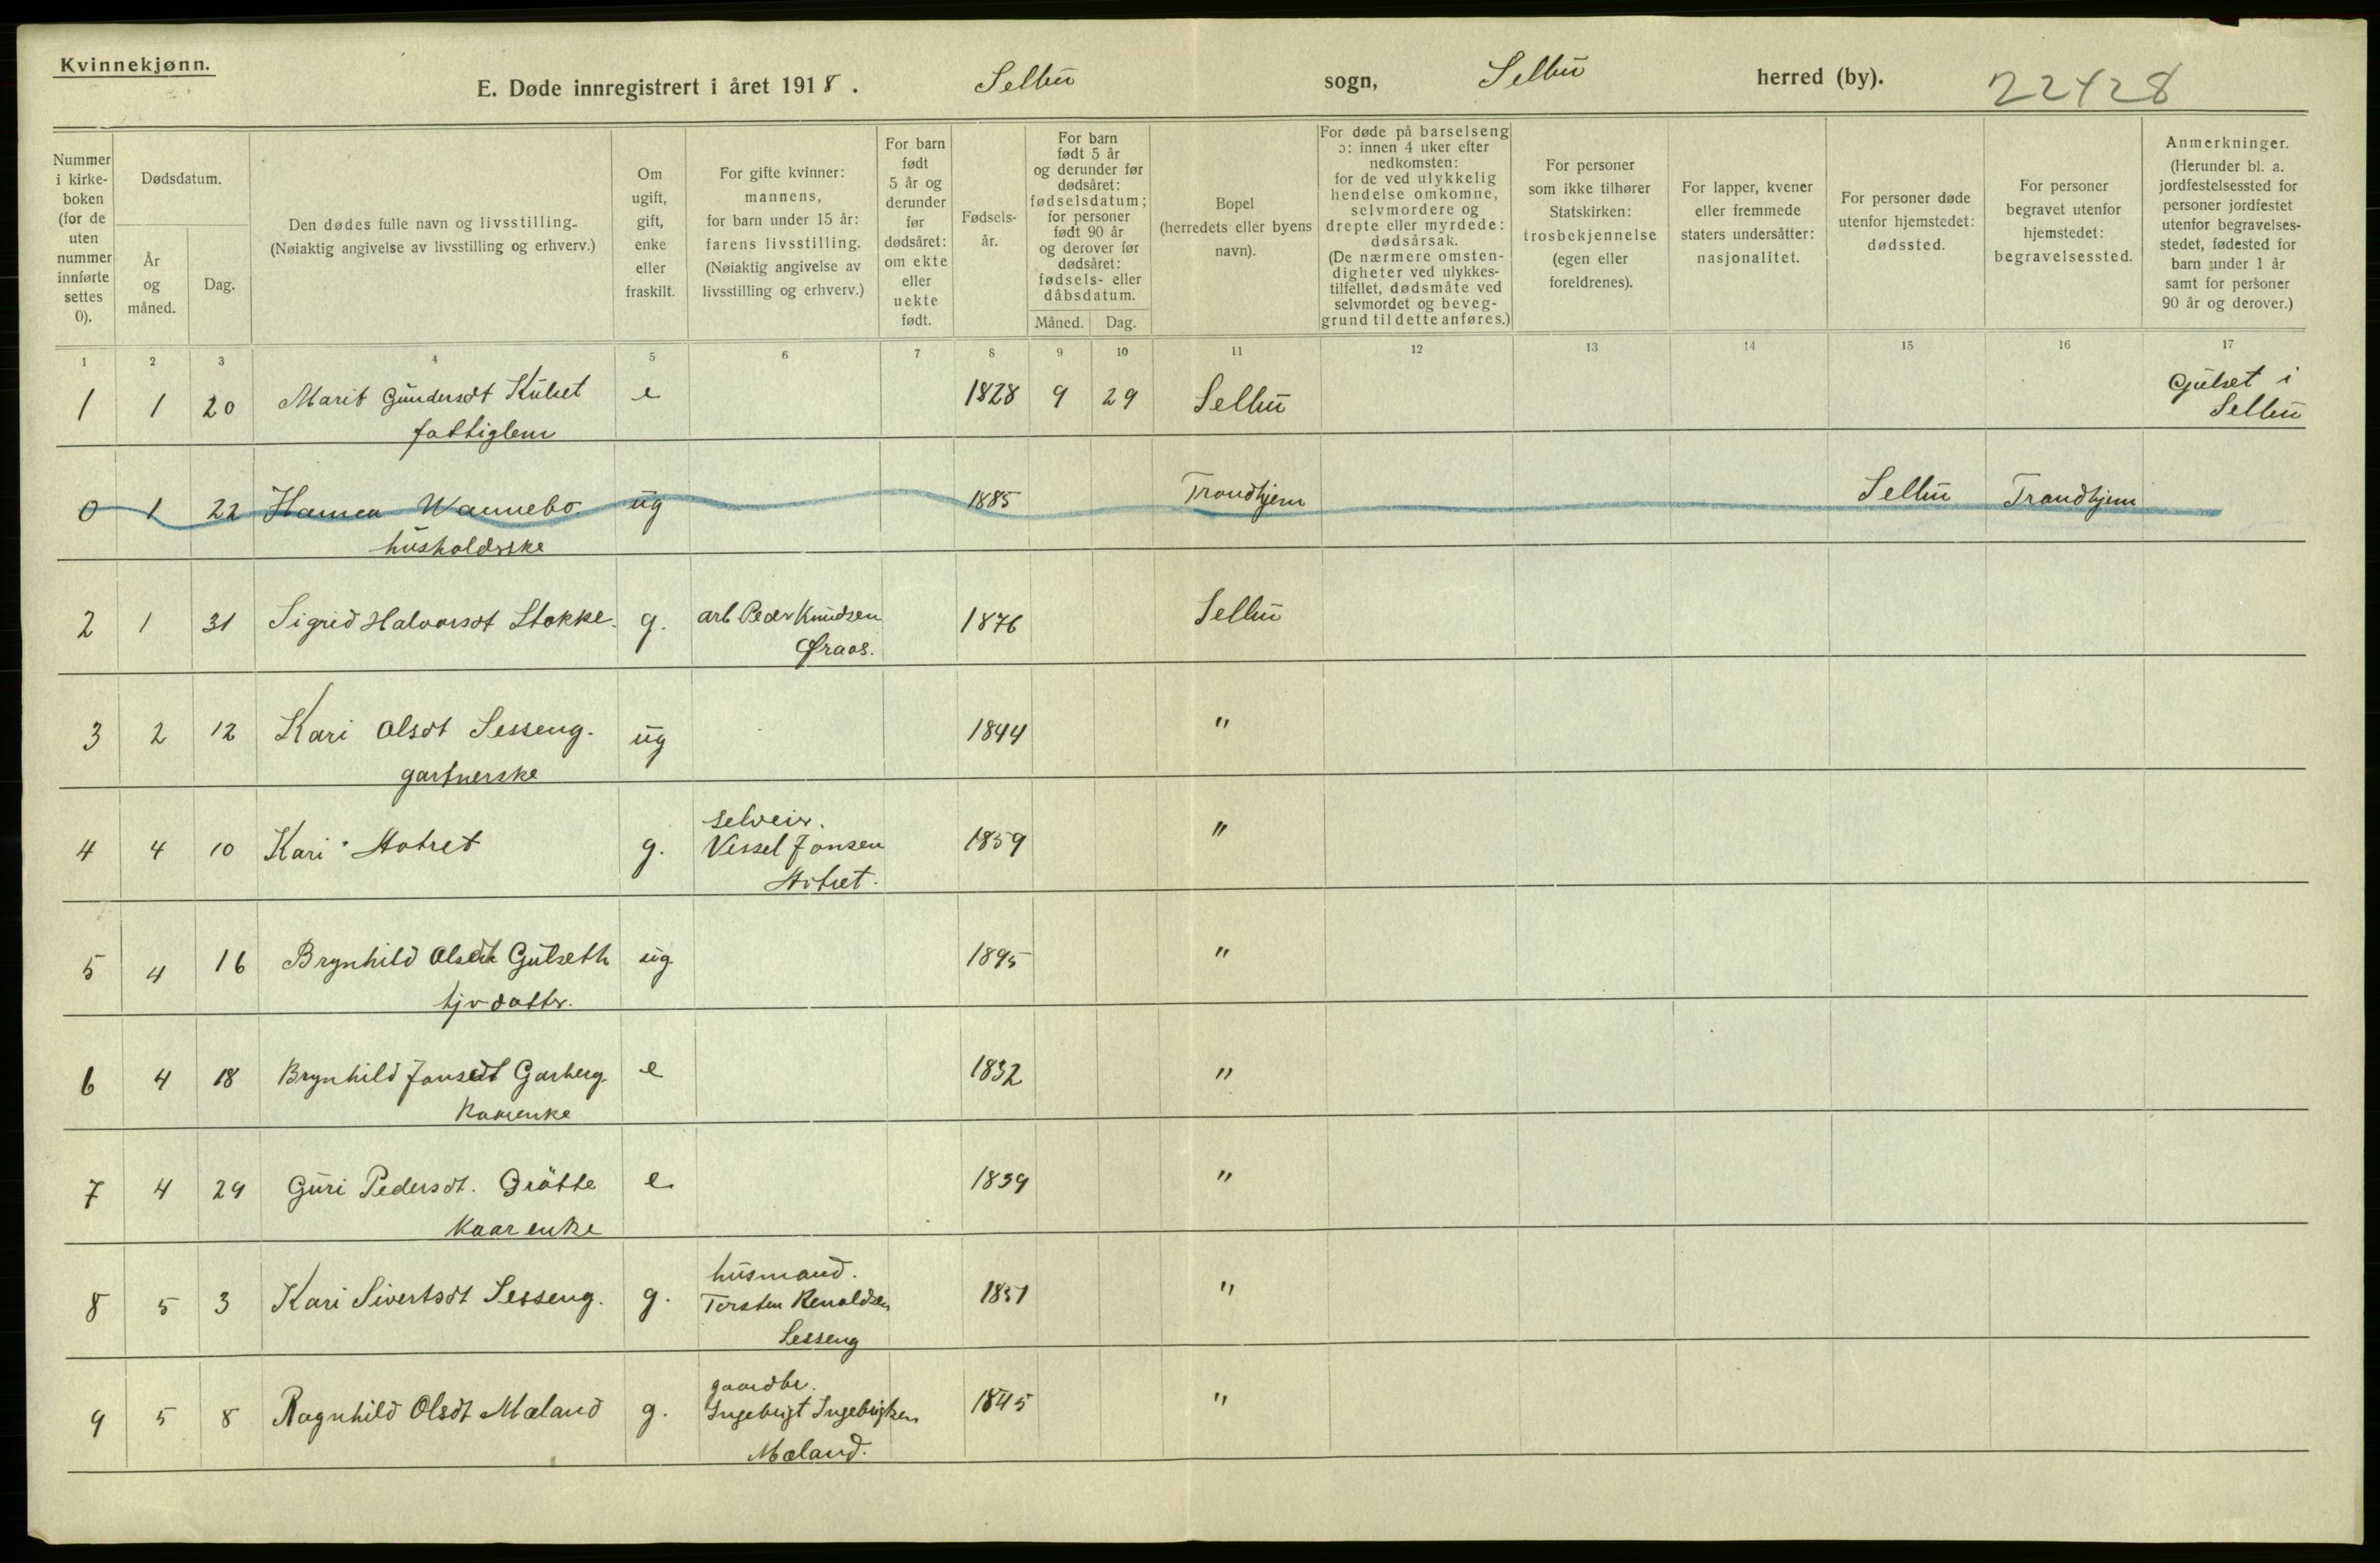 Kvinnekjønn.
E. Døde innregistrert i året 1918. Selbu sogn, Selbu herred (by). 22428
Nummer i kirke-boken (for de uten nummer innførte settes 0).
Dødsdatum.
År og måned.
Dag.
Den dødes fulle navn og livsstilling. (Nøiaktig angivelse av livsstilling og erhverv.)
Om ugift, gift, enke eller fraskilt.
For gifte kvinner: mannens, for barn under 15 år: farens livsstilling. (Nøiaktig angivelse av livsstilling og erhverv.)
For barn født 5 år og derunder før dødsåret: om ekte eller uekte født.
Fødsels-år.
For barn født 5 år og derunder før dødsåret: fødselsdatum; for personer født 90 år og derover før dødsåret: fødsels- eller dåbsdatum.
Måned. Dag.
Bopel (herredets eller byens navn).
For døde på barselseng ɔ: innen 4 uker efter nedkomsten: for de ved ulykkelig hendelse omkomne, selvmordere og drepte eller myrdede: dødsårsak. (De nærmere omsten-digheter ved ulykkes-tilfellet, dødsmåte ved selvmordet og beveg-grund til dette anføres.)
For personer som ikke tilhører Statskirken: trosbekjennelse (egen eller foreldrenes).
For lapper, kvener eller fremmede staters undersåtter: nasjonalitet.
For personer døde utenfor hjemstedet: dødssted.
For personer begravet utenfor hjemstedet: begravelsessted.
Anmerkninger. (Herunder bl. a. jordfestelsessted for personer jordfestet utenfor begravelses-stedet, fødested for barn under 1 år samt for personer 90 år og derover.)
1 2 3 4 5 6 7 8 9 10 11 12 13 14 15 16 17
1 1 20 Marit Gundersdt Kulset e 1828 9 29 Selbu Gulset i
fattiglem Selbu
0 1 22 Hanna Wannebo. ug 1885 Trondhjem Selbu Trondhjem
husholderske
2 1 31 Sigrid Halvorsdt Stokke. g. arb Peder Knudsen 1876 Selbu
Øraas.
3 2 12 Kari Olsdt Sesseng. ug 1844 "
garfnerske
selveier.
4 4 10 Kari Hotret g. Vessel Jonsen 1859 "
5 4 16 Brynhild Olsdt Gulseth ug. 1895 "
tjv datter.
6 4 18 Brynhild Jonsdt Garberg. e 1832 "
Kaarenke
7 4 29 Guri Pedersdt. Grötte e 1839 "
Kaarenke
husmand.
8 5 3 Kari Sivertsdt Sesseng. g. Torsten Renoldsen 1851 "
Sesseng
gaardbr.
9 5 8 Ragnhild Olsdt Mæland g. Ingebrigt Ingebrigtsen 1845 "
Mæland.